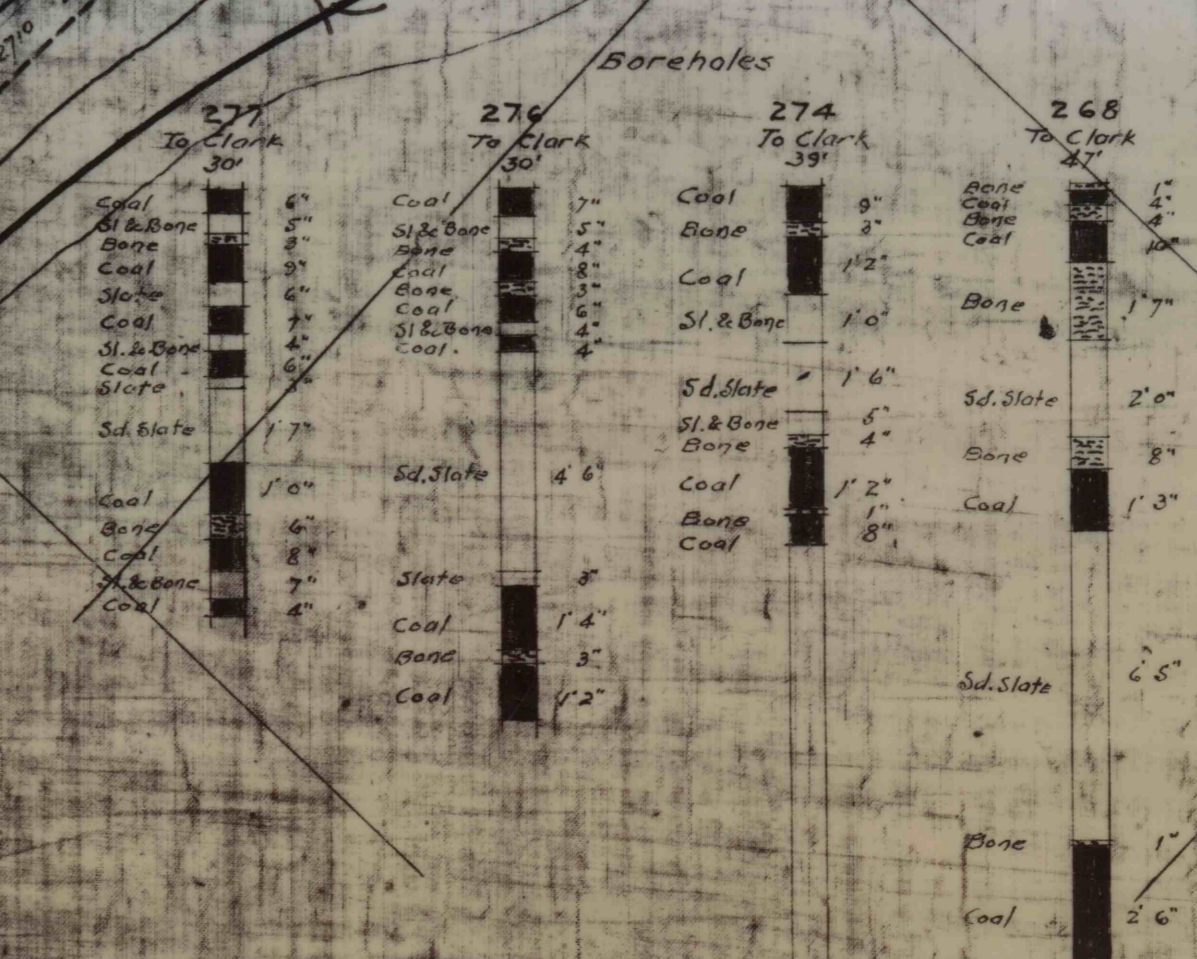 2710
Boreholes
277
To Clark
30'
Coal 6"
Sl & Bone 5"
Bone 3"
Coal 9"
Slate 6"
Coal 7"
Sl. & Bone 4"
Coal 6"
Slate
Sd. Slate 1' 7"
Coal 1' 0"
Bone 6"
Coal 8"
Sl. & Bone 7"
Coal 4"
276
To Clark
30'
Coal 7"
Sl & Bone 5"
Bone 4"
Coal 8"
Bone 3"
Coal 6"
Sl & Bone 4"
Coal. 4"
Sd. Slate 4' 6"
Slate 3"
Coal 1' 4"
Bone 3"
Coal 1' 2"
274
To Clark
39'
Coal 9"
Bone 3"
Coal 1' 2"
Sl. & Bone 1' 0"
Sd. Slate 1' 6"
Sl. & Bone 5"
Bone 4"
Coal 1' 2"
Bone 1"
Coal 8"
268
To Clark
47'
Bone 1"
Coal 4"
Bone 4"
Coal 10"
Bone 1' 7"
Sd. Slate 2' 0"
Bone 8"
Coal 1' 3"
Sd. Slate 6' 5"
Bone 1"
Coal 2' 6"